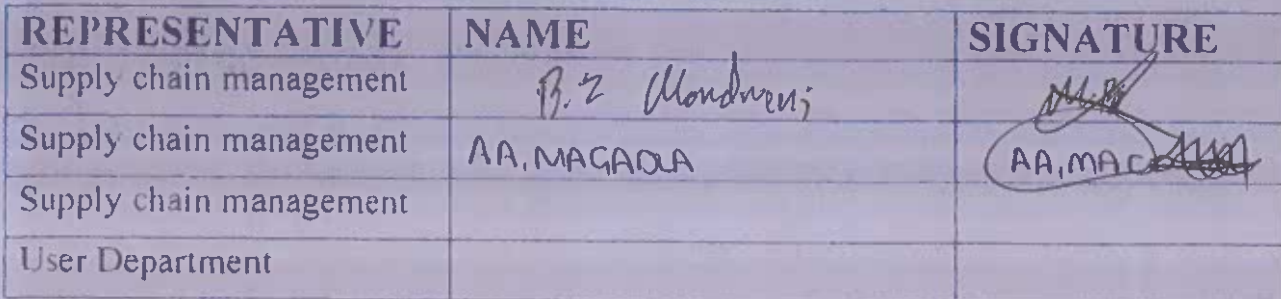 REPRESENTATIVE NAME SIGNATURE
Supply chain management B.Z Mondweni
Supply chain management AA, MAGADLA AA, MAG
Supply chain management
User Department